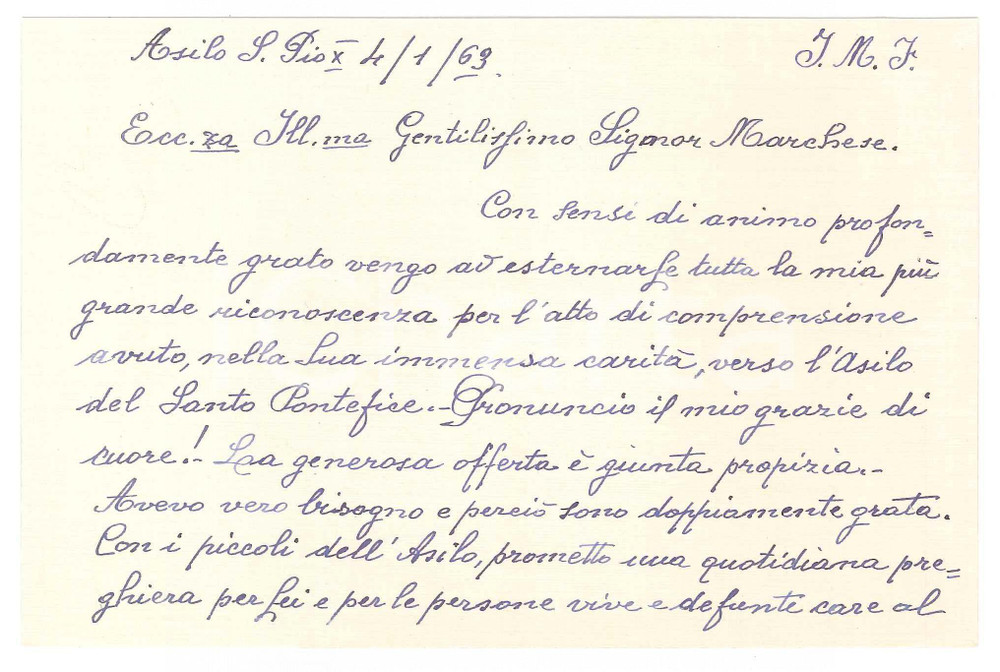 Asilo S. Pio X 4/1/63. J. M. J.
Ecc.za Ill.ma Gentilissimo Signor Marchese.
Con sensi di animo profon=
damente grato vengo ad esternarLe tutta la mia più
grande riconoscenza per l'atto di comprensione
avuto, nella Sua immensa carità, verso l'Asilo
del Santo Pontefice.- Pronuncio il mio grazie di
cuore!- La generosa offerta è giunta propizia.-
Avevo vero bisogno e perciò sono doppiamente grata.
Con i piccoli dell'Asilo, prometto una quotidiana pre=
ghiera per Lei e per le persone vive e defunte care al